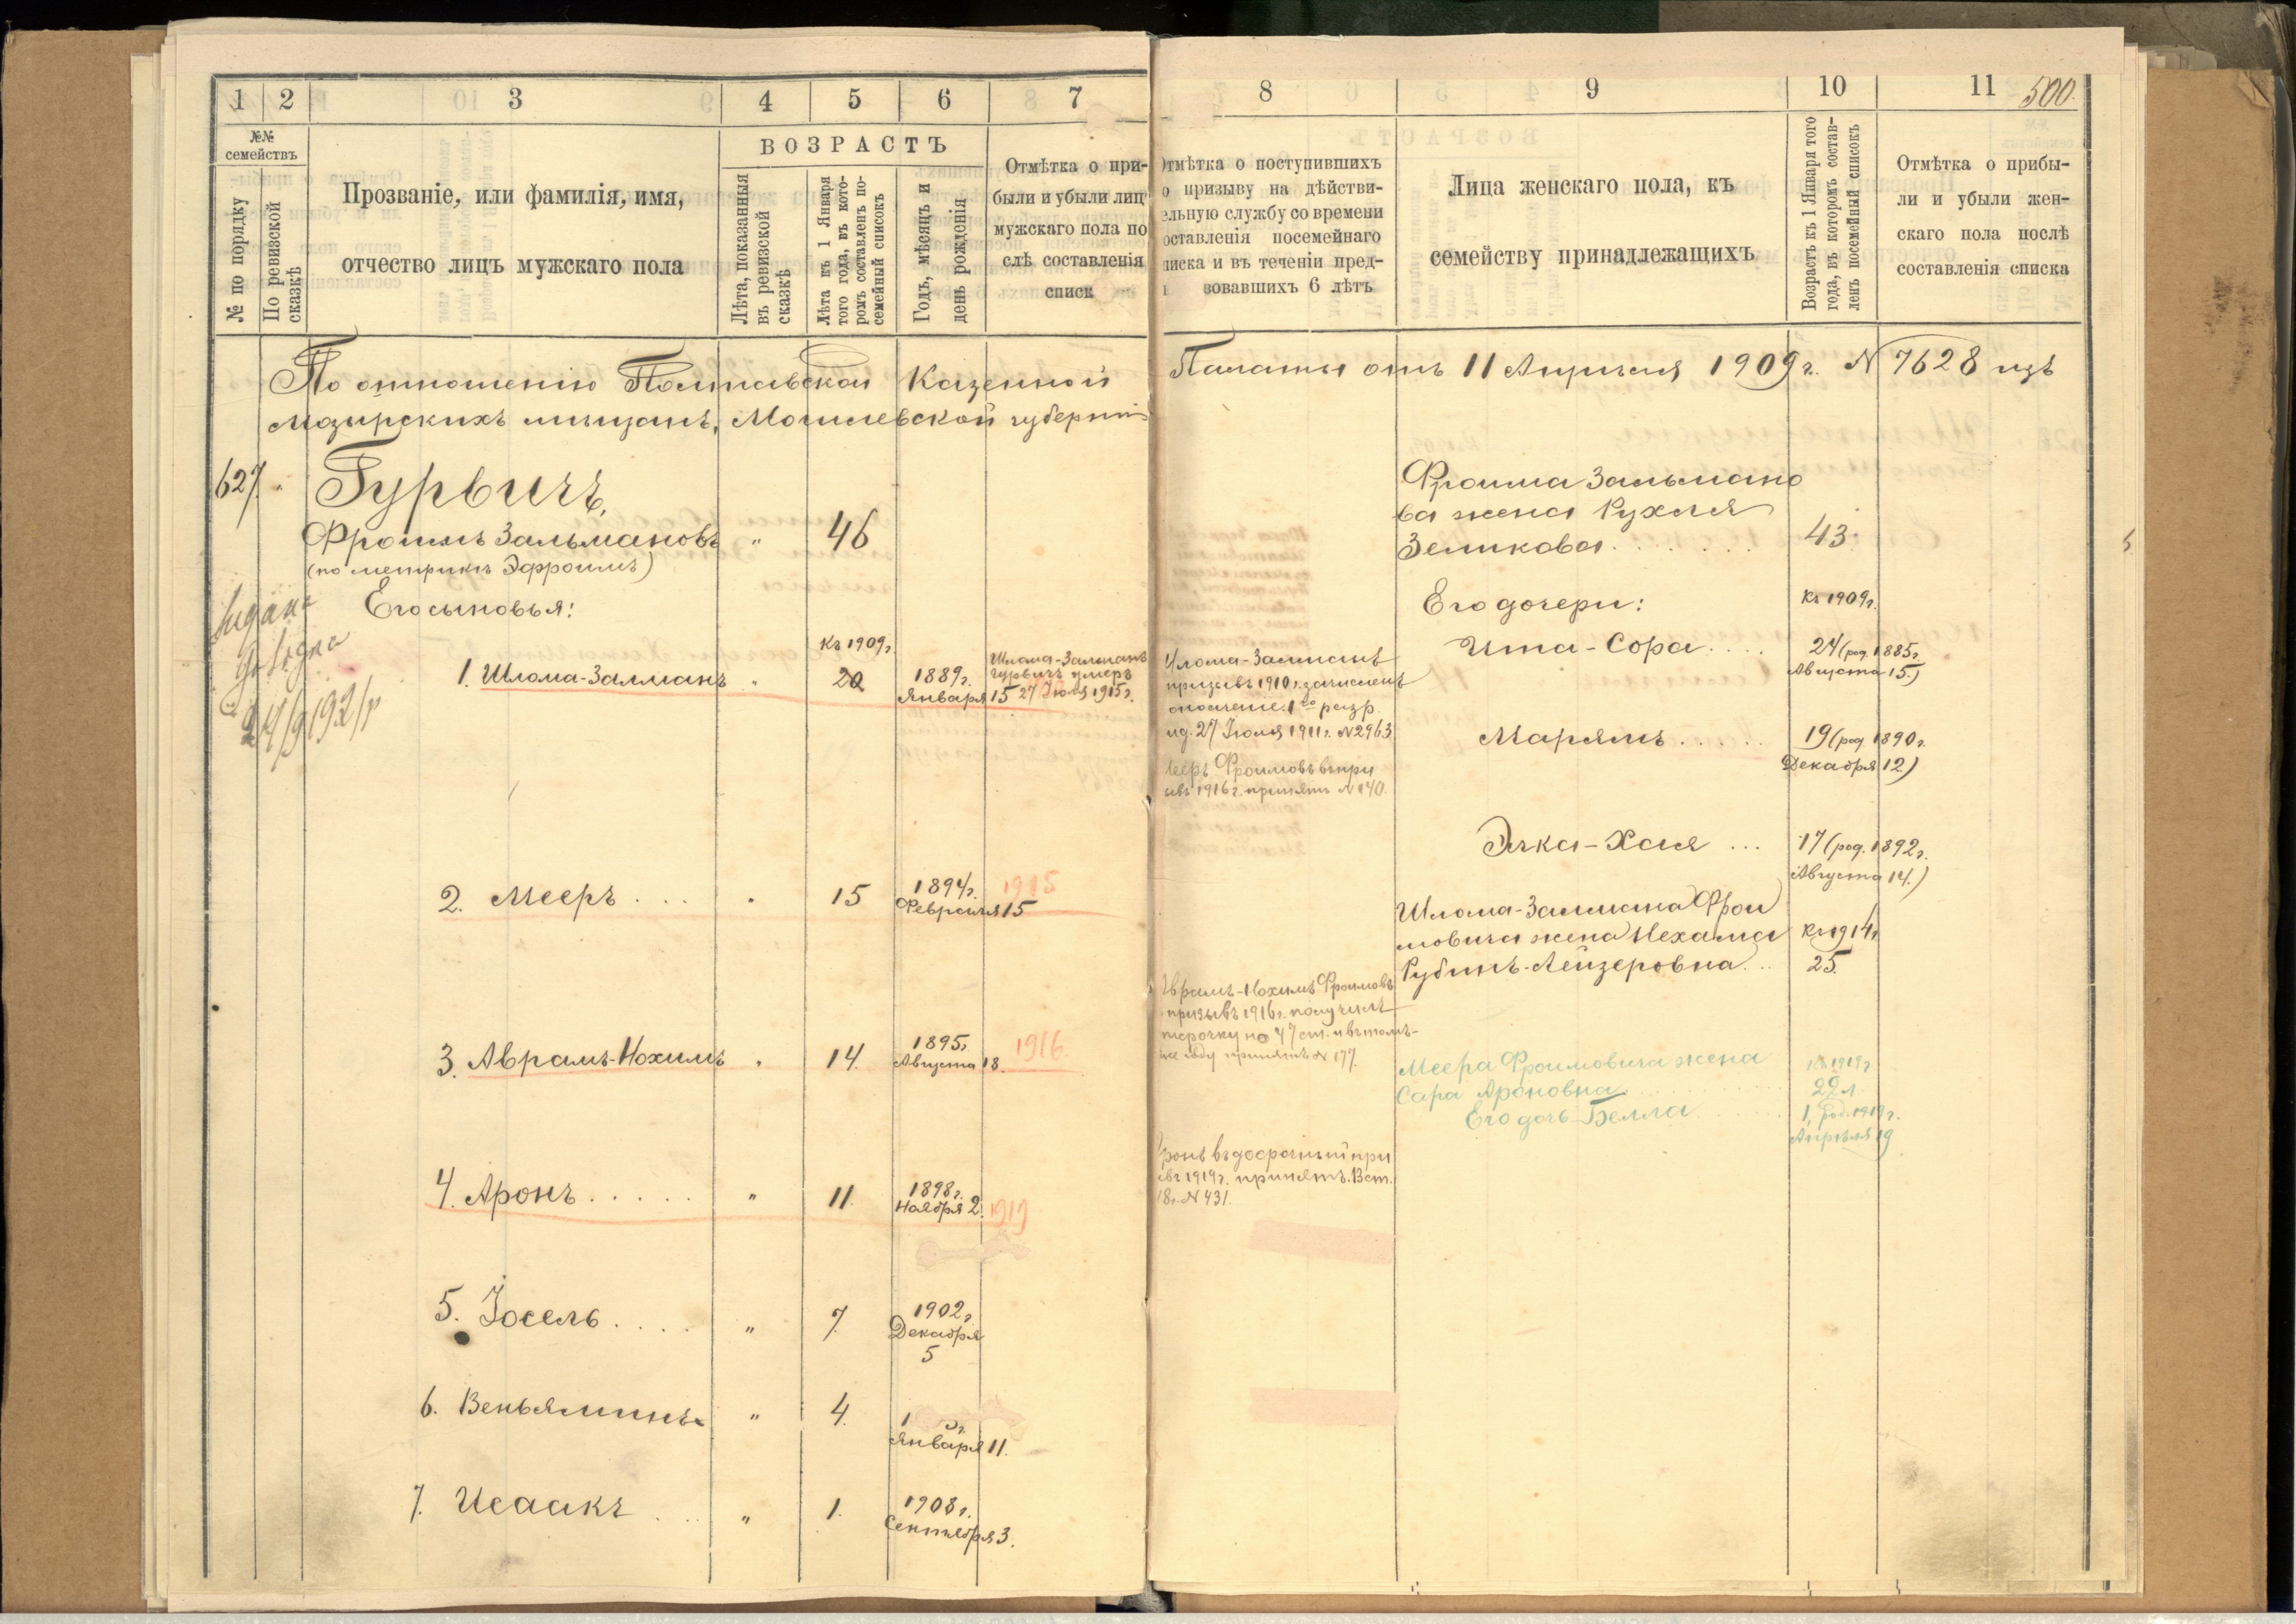 1 2 3 4 5 6 7
№№ семействъ
№ по порядку
По ревизской сказкѣ
Прозваніе, или фамилія, имя,
отчество лицъ мужскаго пола
ВОЗРАСТЪ
Лѣта, показанныя
въ ревизской
сказкѣ
Лѣта къ 1 Января
того года, въ кото-
ромъ составленъ по-
семейный списокъ
Годъ, мѣсяцъ и
день рожденія
Отмѣтка о при-
были и убыли лицъ
мужскаго пола по
слѣ составленія
списк
По отношенію Полтавской Казенной
мозырскихъ мѣщанъ, Могилевской губерніи
627.
Гурвичъ,
Фроимъ Зальмановъ " 46
(по метрикѣ Эфроимъ)
Его сыновья:
Къ 1909 г.
1. Шлома-Залманъ " 20
1889 г.
Января 15
Шлома-Залманъ
Гурвичъ умеръ
27 Іюля 1915 г.
2. Мееръ . . . . " 15
1894 г.
Февраля 15
1915
3. Аврамъ-Нохимъ " 14.
1895 г.
Августа 18.
1916
4. Аронъ . . . . . " 11.
1898 г.
Ноября 2.
1919
5. Іосель . . . . " 7.
1902 г.
Декабря
5
6. Веньяминъ " 4.
Января 11.
7. Исаакъ . . . " 1.
1908 г.
Сентября 3.
8 9 10 11
500.
Отмѣтка о поступившихъ
о призыву на дѣйстви-
ельную службу со времени
оставленія посемейнаго
писка и въ теченіи пред-
зовавшихъ 6 лѣтъ
Лица женскаго пола, къ
семейству принадлежащихъ
Возрастъ къ 1 Января того
года, въ которомъ состав-
ленъ посемейный списокъ
Отмѣтка о прибы-
ли и убыли жен-
скаго пола послѣ
составленія списка
Палаты отъ 11 Апрѣля 1909 г. N 7628 изъ
Фроима Зальмано
ва жена Рухля
Зеликова . . . . . . 43.
Его дочери: Къ 1909 г.
Шлома-Залманъ
призывъ 1910 г. зачисленъ
ополченіе 1го разр.
ид. 27 Іюля 1911 г. N 2963
Мееръ Фроимовъ въ при
ывъ 1916 г. принятъ N 140.
Ита-Сора . . . . 24 (род. 1885 г.
Августа 15.)
Марямъ . . . . . 19 (род. 1890 г.
Декабря 12)
Эчка-Хая . . . 17 (род. 1892 г.
Августа 14.)
Шлома-Залмана Фрои
мовича жена Нехама Къ 1914 г.
Рубинъ-Лейзеровна . . 25.
Аврамъ-Нохимъ Фроимовъ
призывъ 1916 г. получилъ
тсрочку по 47 ст. и въ томъ-
же году принятъ N 177.
Меера Фроимовича жена Къ 1919 г.
Сара Ароновна . . . . 22 л.
Его дочь Белла . . . . 1, род. 1919 г.
Апрѣля 19
Аронъ въ досрочный при
ывъ 1919 г. принятъ. В ст.
18 г. N 431.